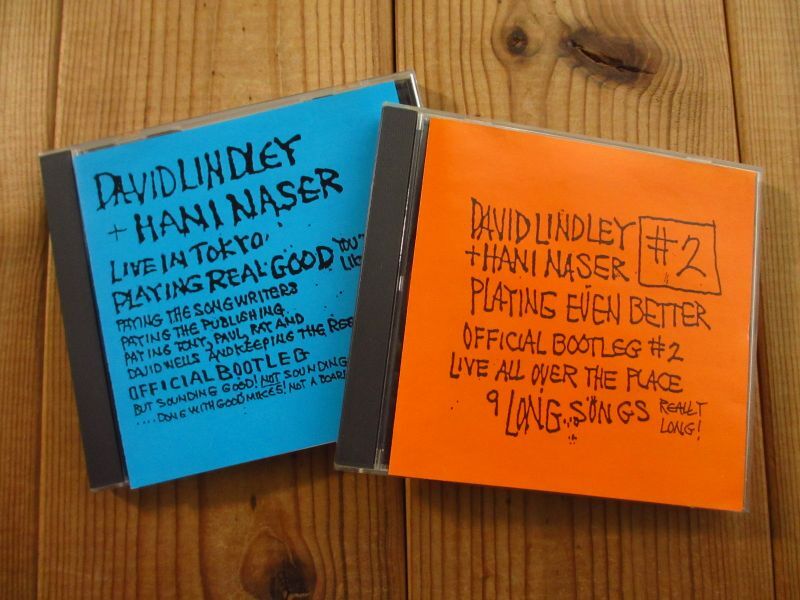 DAVID LINDLEY
+ HANI NASER
LIVE IN TOKYO
PLAYING REAL GOOD
PAYING THE SONGWRITERS
PAYING THE PUBLISHING
PAYING TONY, PAUL, RAY, AND
DAVID WELLS AND KEEPING THE
OFFICIAL BOOTLEG
BUT SOUNDING GOOD! NOT SOUNDING
.... DONE WITH GOOD MIKES! NOT A
DAVID LINDLEY
+ HANI NASER
#2
PLAYING EVEN BETTER
OFFICIAL BOOTLEG #2
LIVE ALL OVER THE PLACE
9 LONG SONGS
REALLY
LONG!